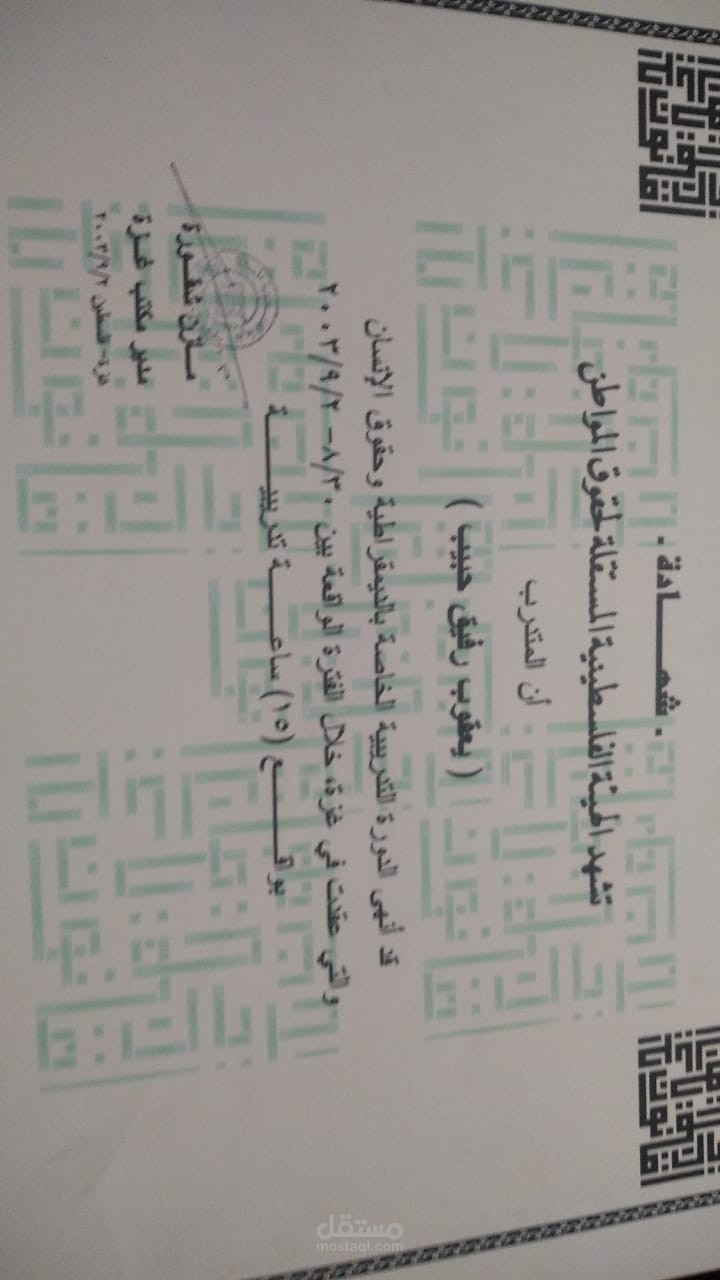 . شهـــــادة .
تشهد الهيئة الفلسطينية المستقلة لحقوق المواطن
أن المتدرب
( يعقوب رفيق حبيب )
قد أنهى الدورة التدريبية الخاصة بالديمقراطية وحقوق الإنسان
والتي عقدت في غزة، خلال الفترة الواقعة بين ٨/٣٠ – ٢٠٠٣/٩/٢
بواقـــــع (١٥) ساعـــــة تدريبيـــــة
مدير مكتب غـزة
غزة- فلسطين ٢٠٠٣/٩/٢
مستقل
mostaql.com